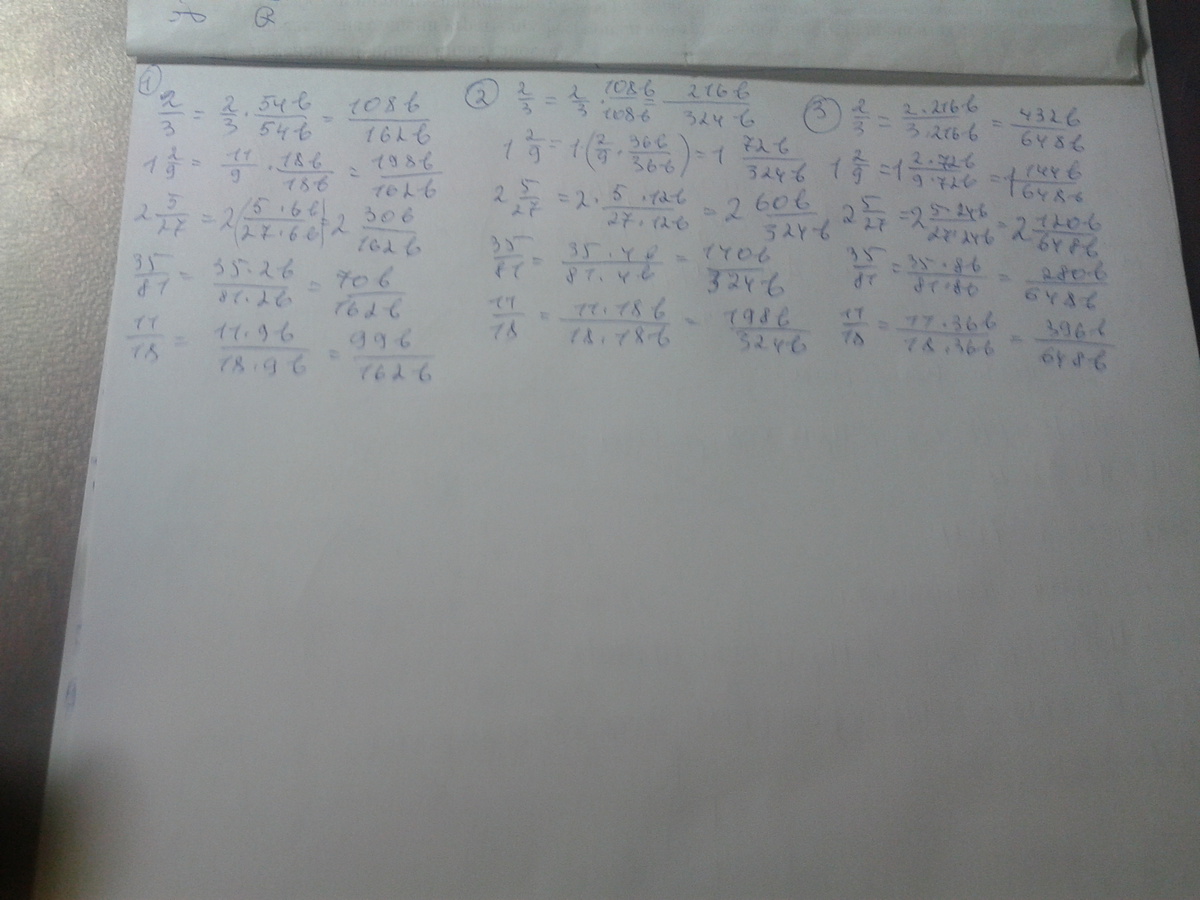 ①
2/3 = 2/3 · 54b/54b = 108b/162b
1 2/9 = 11/9 · 18b/18b = 198b/162b
2 5/27 = 2(5·6b/27·6b) = 2 30b/162b
35/81 = 35·2b/81·2b = 70b/162b
11/18 = 11·9b/18·9b = 99b/162b
②
2/3 = 2/3 · 108b/108b = 216b/324b
1 2/9 = 1(2/9 · 36b/36b) = 1 72b/324b
2 5/27 = 2· 5·12b/27·12b = 2 60b/324b
35/81 = 35·4b/81·4b = 140b/324b
11/18 = 11·18b/18·18b = 198b/324b
③
2/3 = 2·216b/3·216b = 432b/648b
1 2/9 = 1 2·72b/9·72b = 1 144b/648b
2 5/27 = 2 5·24b/27·24b = 2 120b/648b
35/81 = 35·8b/81·8b = 280b/648b
11/18 = 11·36b/18·36b = 396b/648b